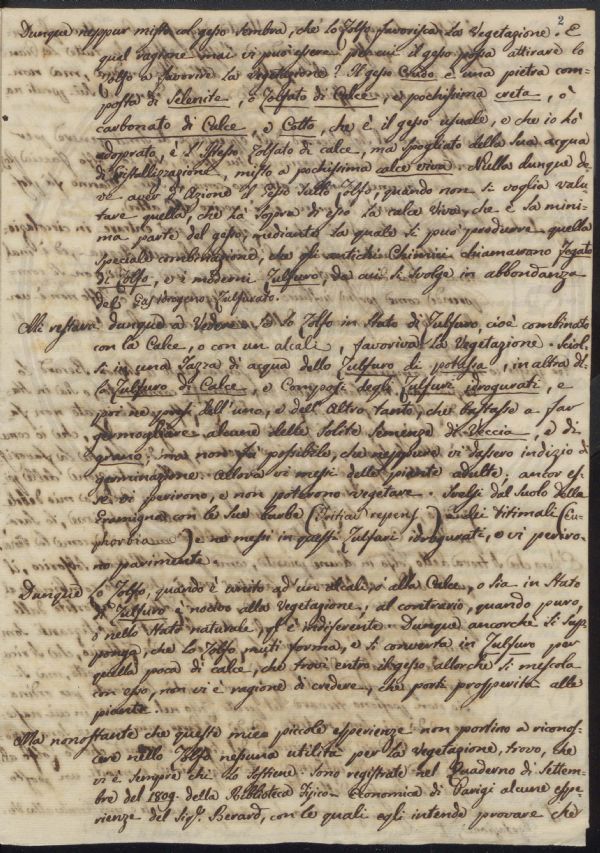 2
Dunque neppur misto col gesso sembra, che lo Zolfo favorisca la Vegetazione. E
qual ragione mai vi può essere per cui il gesso possa attirare lo
Zolfo a favorire la Vegetazione? Il gesso Crudo è una pietra com-
posta di Selenite, o Zolfato di Calce, e pochissima creta, o
carbonato di Calce, e Cotto, che è il gesso usuale, e che io hò
adoprato, è l'istesso Zolfato di calce, ma spogliato della Sua acqua
di Cristallizzazione, misto a pochissima calce viva. Nulla dunque de-
ve aver d'Azione il Gesso sullo Zolfo, quando non si voglia valu-
tare quella, che hà sopra di esso la calce Viva, che è la mini-
ma parte del gesso, mediante la quale si può produrre quella
speciale combinazione, che gli antichi Chimici chiamarono Fegato
di Zolfo, e i moderni Zulfuro, da cui si svolge in abbondanza
del Gas idrogeno Zulfurato.
Mi restava dunque a Vedere se lo Zolfo in stato di Zulfuro, cioè combinato
con la Calce, o con un alcali, favoriva la Vegetazione. Sciol-
si in una Tazza di acqua dello Zulfuro di potassa, in altra del-
lo Zulfuro di Calce, e Composi degli Zulfuri idrogurati, e
poi ne presi dell'uno, e dell'Altro tanto, che bastasse a far
germogliare alcune delle solite Semenze di Veccia, e di
grano; ma non fu possibile, che neppure vi dassero indizio di
germinazione. Allora vi messi delle piante adulte; ancor es-
se vi perirono, e non poterono vegetare. Svelsi dal Suolo della
Gramigna con le Sue barbe (Triticum repens) e dei Titimali (Eu-
phorbia) e ne messi in questi Zulfuri idrogurati, e vi periro-
no parimente.
Dunque Lo Zolfo, quando è unito ad un alcali, o alla Calce, o sia in Stato
di Zulfuro è nocivo alla Vegetazione; al contrario, quando puro,
o nello stato naturale, gl'è indiferente. Dunque ancorchè si sup-
ponga, che lo Zolfo muti forma, e si converta in Zulfuro per
quella poca di calce, che trovi entro il gesso allorchè si mescola
con esso, non vi è ragione di credere, che porti prosperità alle
piante.
Ma nonostante che queste mie piccole esperienze non portino a riconos-
cere nello Zolfo nessuna utilità per la Vegetazione, trovo, che
vi è sempre chi lo sostiene. Sono registrate nel Quaderno di Settem-
bre del 1809. della Biblioteca Fisico-Economica di Parigi alcune espe-
rienze del Sigr. Berard, con le quali egli intende provare che